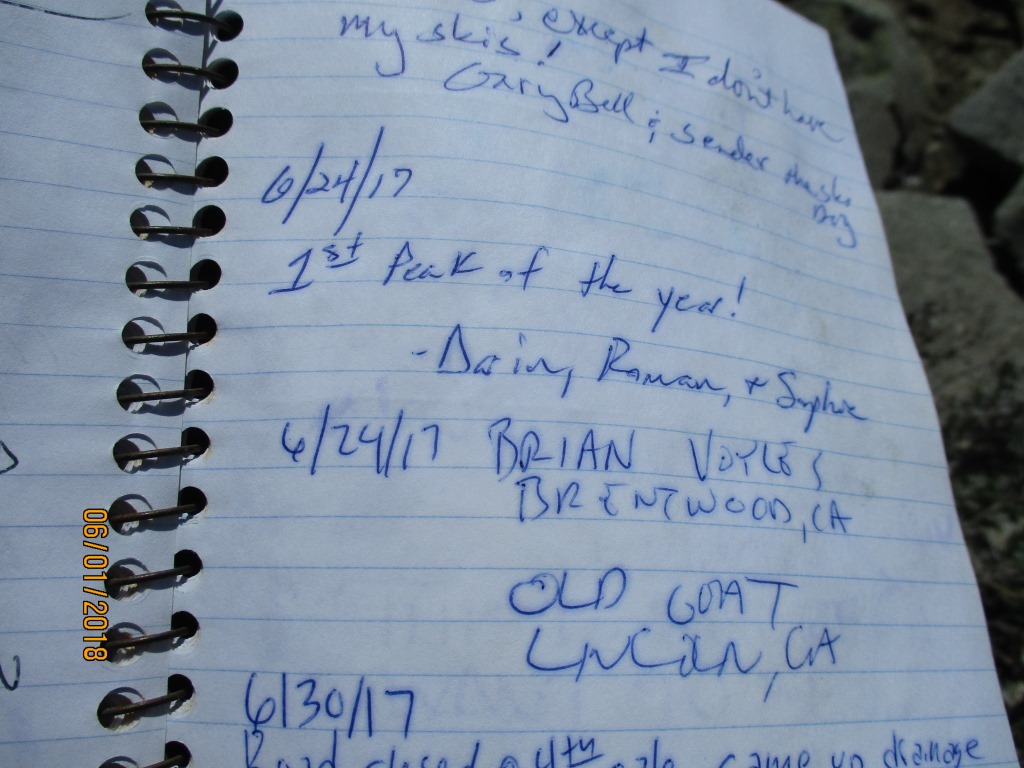 , except I don't have
my skis!
Gary Bell & Sender the ski
Dog
6/24/17
1st Peak of the year!
- Darin, Roman, + Sophie
6/24/17 BRIAN VOYLES
BRENTWOOD, CA
OLD GOAT
LINCOLN, CA
6/30/17
Road closed @ 4th gate, came up drainage
06/01/2018